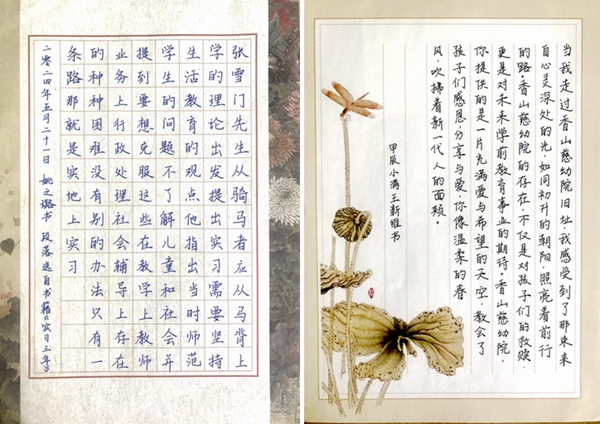 张雪门先生从骑马者应从马背上
学的理论出发提出实习需要坚持
生活教育的观点他指出当时师范
学生的问题不了解儿童和社会并
提到要想克服这些在教学上教师
业务上行政处理社会辅导上存在
的种种困难没有别的办法只有一
条路那就是实地上实习
二零二四年五月二十一日 姚之璐书 段落选自书籍《实习三年》
当我走过香山慈幼院旧址,我感受到了那束来
自心灵深处的光,如同初升的朝阳,照亮着前行
的路。香山慈幼院的存在,不仅是对孩子们的救赎,
更是对未来学前教育事业的期待。香山慈幼院,
你提供的是一片充满爱与希望的天空,教会了
孩子们感恩分享与爱,你像温柔的春
风,吹拂着新一代人的面颊。
甲辰小满王新雅书